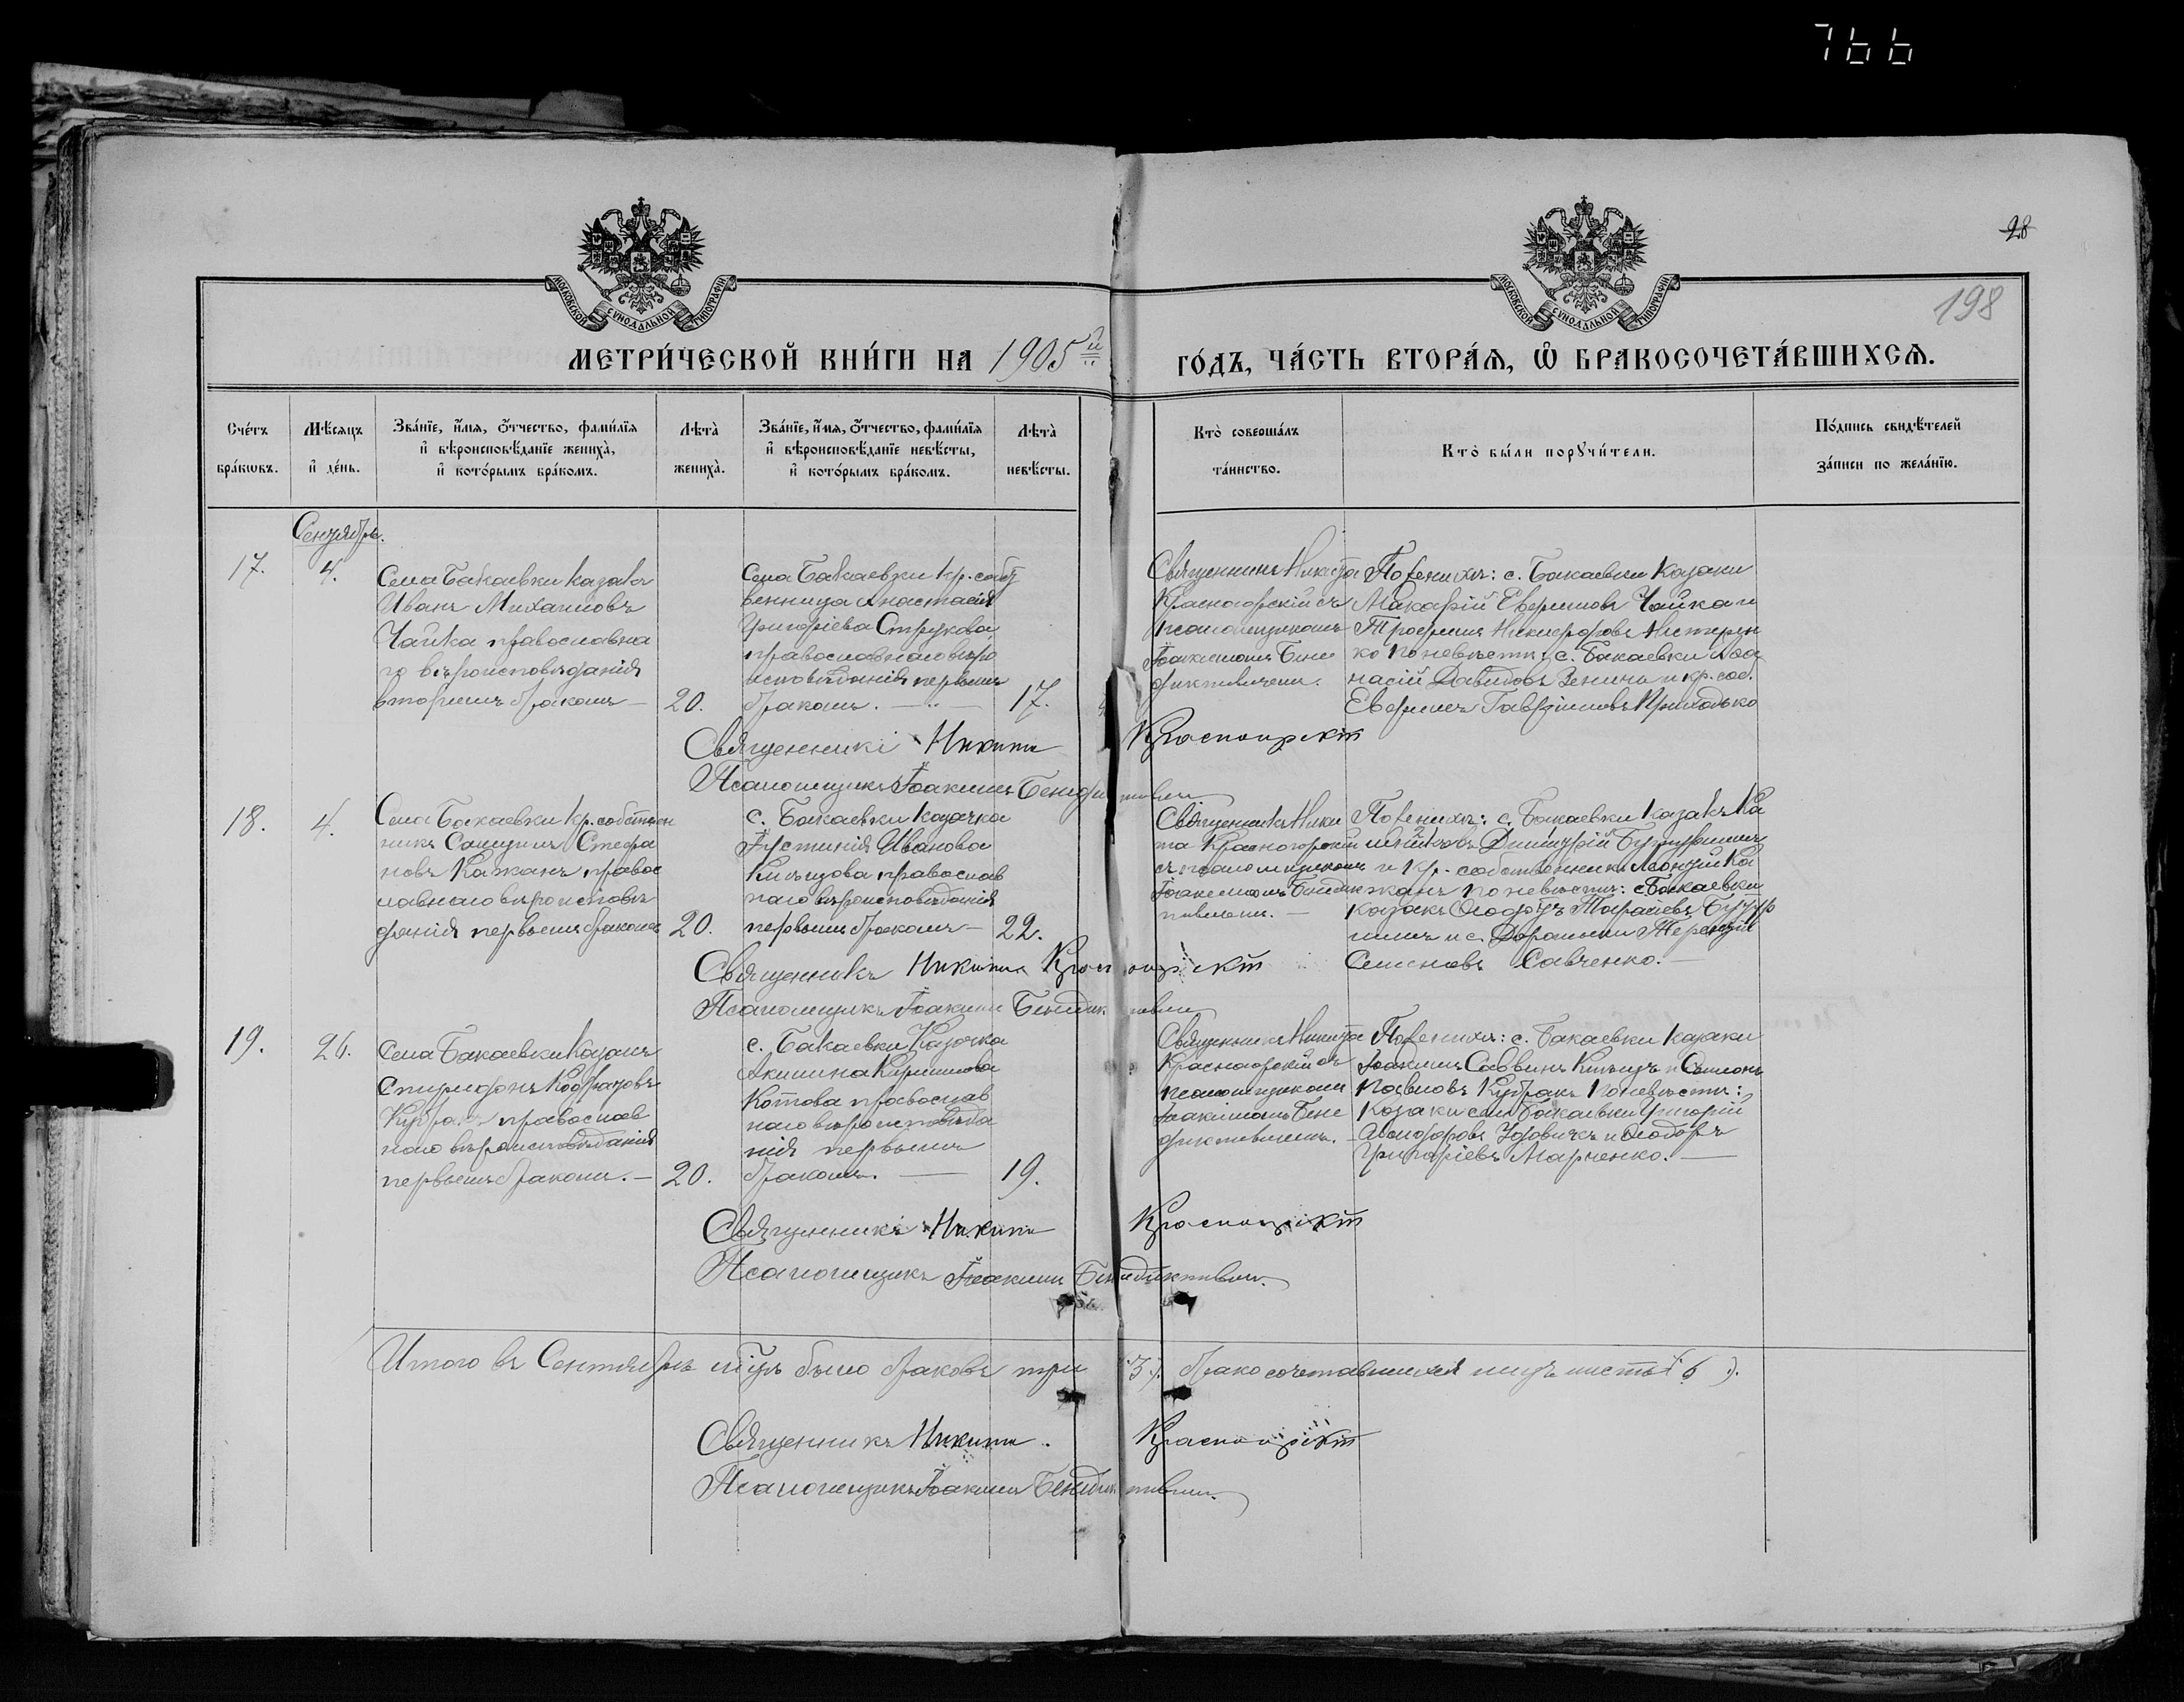 766
28
198
МОСКОВСКОЙ СУНОДАЛЬНОЙ ТИПОГРАФІИ
МОСКОВСКОЙ СУНОДАЛЬНОЙ ТИПОГРАФІИ
МЕТРИ́ЧЕСКОЙ КНИ́ГИ НА 1905й
ГО́ДЪ, ЧА́СТЬ ВТОРА́Я, Ѿ БРАКОСОЧЕТА́ВШИХСѦ.
Сче́тъ бра́кѡвъ.
Мѣ́сяцъ и де́нь.
Зва́нїе, и́мя, о́тчество, фами́лїя
и вѣроисповѣ́данїе жениха̀,
и кото́рымъ бра́комъ.
Лѣта̀ жениха̀.
Зва́нїе, и́мя, о́тчество, фами́лїя
и вѣроисповѣ́данїе невѣ́сты,
и кото́рымъ бра́комъ.
Лѣта̀ невѣ́сты.
Кто̀ соверша́лъ та́инство.
Кто̀ бы́ли порꙋчи́тели.
По́дпись свидѣ́телей за́писи по жела́нїю.
Сентябрь.
17.
4.
Села Бакаевки казакъ
Иванъ Михаиловъ
Чайка православна
го вѣроисповѣданія
вторымъ бракомъ —
20.
Села Бакаевки кр. собст
венница Анастасія
Григоріева Струкова
православнаго вѣро
исповѣданія первымъ
бракомъ. —
17.
Священникъ Никита
Красногорскій съ
псаломщикомъ
Іоакимомъ Бене
диктовичемъ.
По женихѣ: с. Бакаевки казаки
Макарій Евфимовъ Чайка и
Трофимъ Никифоровъ Нистерен
ко по невѣстѣ: с. Бакаевки Аѳа
насій Давидовъ Зеничъ и кр. соб.
Евфимъ Гавріиловъ Приходько
Священникъ Никита Красногорскій
Псаломщикъ Іоакимъ Бенедиктовичъ
18.
4.
Села Бакаевки кр. собствен
никъ Самуилъ Стефа
новъ Кажанъ правос
лавнаго вѣроисповѣ
данія первымъ бракомъ
20.
с. Бакаевки казачка
Іустинія Иванова
Кильцова православ
наго вѣроисповѣданія
первымъ бракомъ —
22.
Священникъ Ники
та Красногорскій
съ псаломщикомъ
Іоакимомъ Бенедик
товичемъ. —
По женихѣ: с. Бакаевки казакъ
Димитрій
и кр. собственники Леонтій Ка
жанъ по невѣстѣ: с. Бакаевки
казакъ Ѳеодотъ Тарасіевъ
и с. Дорогинки Терентій
Семеновъ Савченко. —
Священникъ Никита Красногорскій
Псаломщикъ Іоакимъ Бенедиктовичъ
19.
26.
Села Бакаевки казакъ
Спиридонъ Кодратовъ
Кубракъ православ
наго вѣроисповѣданія
первымъ бракомъ. —
20.
с. Бакаевки казачка
Акилина Кириллова
Котова православ
наго вѣроисповѣда
нія первымъ
бракомъ. —
19.
Священникъ Никита
Красногорскій съ
псаломщикомъ
Іоакимомъ Бене
диктовичемъ. —
По женихѣ: с. Бакаевки казаки
Іоакимъ Саввинъ и Симеонъ
Павловъ Кубракъ по невѣстѣ:
казаки села Бакаевки Григорій
Удовичъ и Ѳеодоръ
Григоріевъ Марченко. —
Священникъ Никита Красногорскій
Псаломщикъ Іоакимъ Бенедиктовичъ.
Итого въ Сентябрѣ м-цѣ было браковъ три (3). бракосочетавшихся лицъ шесть (6).
Священникъ Никита Красногорскій
Псаломщикъ Іоакимъ Бенедиктовичъ.